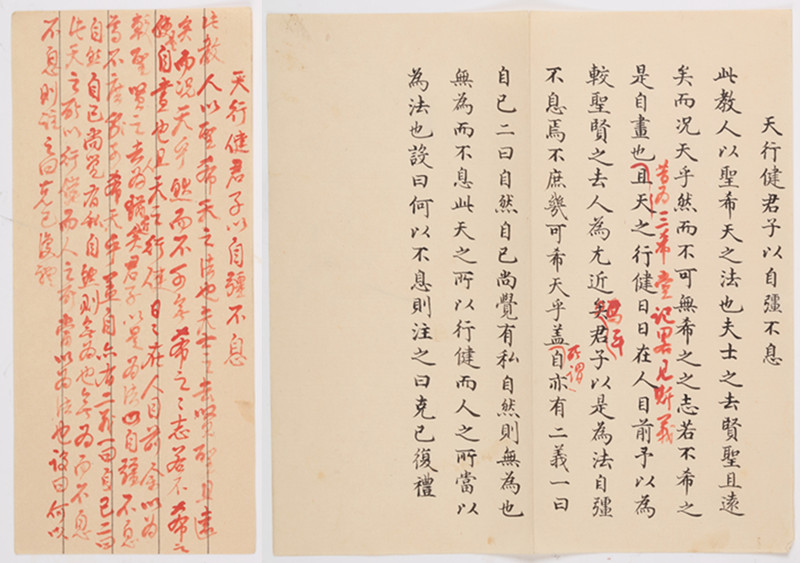 天行健君子以自彊不息
此教人以聖希天之法也夫士之去賢聖且遠
矣而况天乎然而不可無希之之志若不希之
昔為三希堂記畧見斯義
是自畫也且天之行健日日在人目前予以為
較聖賢之去人為尤近矣君子以是為法自彊
焉耳
不息焉不庶幾可希天乎盖自亦有二義一曰
所謂
自己二曰自然自己尚覺有私自然則無為也
無為而不息此天之所以行健而人之所當以
為法也設曰何以不息則注之曰克己復禮
天行健君子以自彊不息
此教人以聖希天之法也夫士之去賢聖且遠
矣而况天乎然而不可無希之之志若不希之
是自畫也且天之行健日日在人目前余以為
較聖賢之去人為近矣君子以是為法自彊不息
焉不庶幾可希天乎盖自亦有二義一曰自己二曰
自然自己尚覺有私自然則無為也無為而不息
此天之所以行健而人之所當以為法也設曰何以
不息則注之曰克己復禮